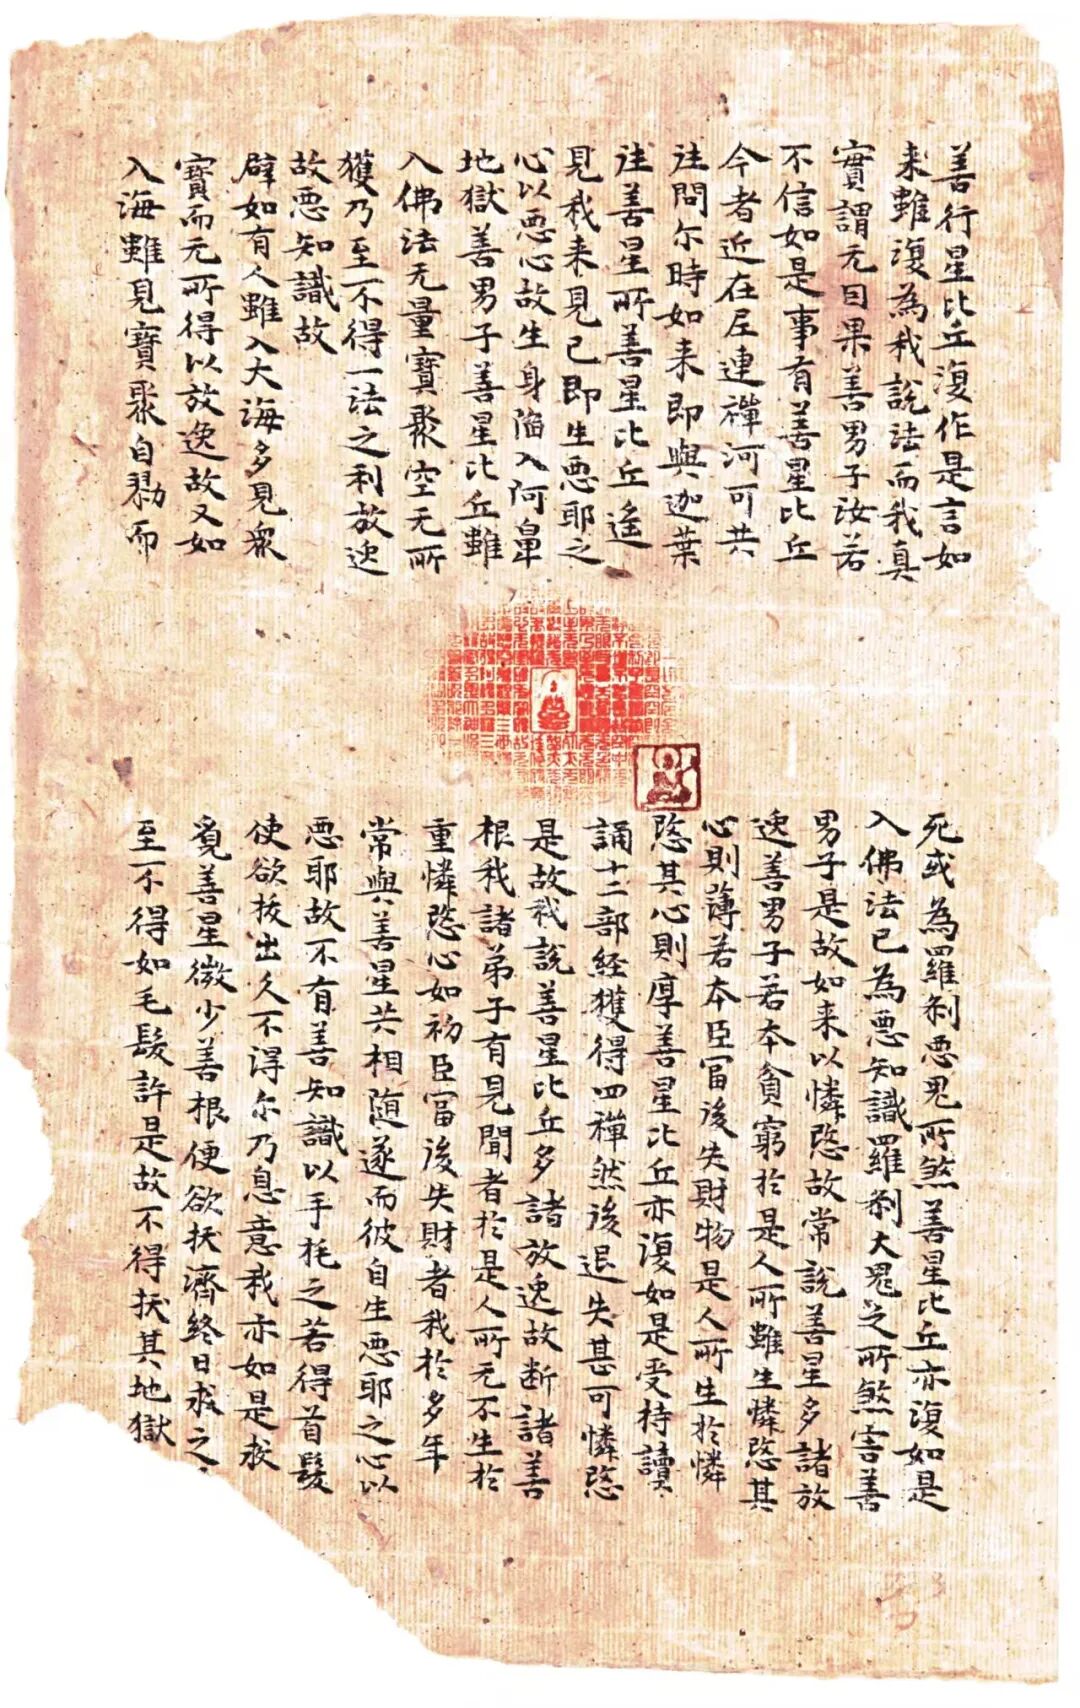 善行星比丘復作是言如
来雖復為我説法而我真
實謂无因果善男子汝若
不信如是事有善星比丘
今者近在尼連禪河可共
往問尒時如来即與迦葉
往善星所善星比丘遙
見我来見已即生惡耶之
心以惡心故生身陷入阿鼻
地獄善男子善星比丘雖
入佛法无量寶聚空无所
獲乃至不得一法之利放逸
故惡知識故
譬如有人雖入大海多見衆
寶而无所得以放逸故又如
入海雖見寶聚自勠而
死或為羅刹惡鬼所煞善星比丘亦復如是
入佛法已為惡知識羅刹大鬼之所煞害善
男子是故如来以憐愍故常説善星多諸放
逸善男子若本貧窮於是人所雖生憐愍其
心則薄若本臣富後失財物是人所生於憐
愍其心則厚善星比丘亦復如是受持讀
誦十二部経獲得四禪然後退失甚可憐愍
是故我説善星比丘多諸放逸故断諸善
根我諸弟子有見聞者於是人所无不生於
重憐愍心如初臣富後失財者我於多年
常與善星共相随逐而彼自生惡耶之心以
惡耶故不有善知識以手挓之若得首髮
使欲拔出久不得尒乃息意我亦如是求
覓善星微少善根便欲扶濟終日求之
至一不得如毛髮許是故不得扶其地獄